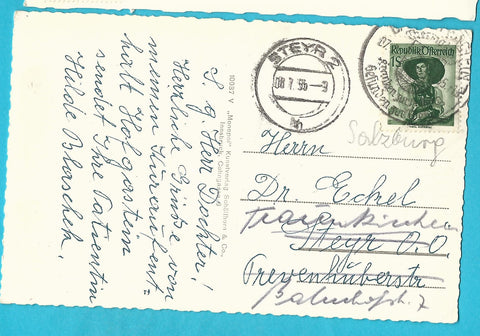 S. g. Herr Doktor!
Herzliche Grüße von
meinem Kuraufent=
halt Hofgastein
sendet Ihre Patientin
Hilde Blaschek.
10037 V "Monopol" Kunstverlag Schöllhorn & Co.
STEYR 2
08.7.55-9
Republik Österreich
1S
Salzburg
Herrn
Dr. Eckel
Traunkirchen
Steyr O.Ö.
Prevenhüberstr
Bahnhofstr. 7